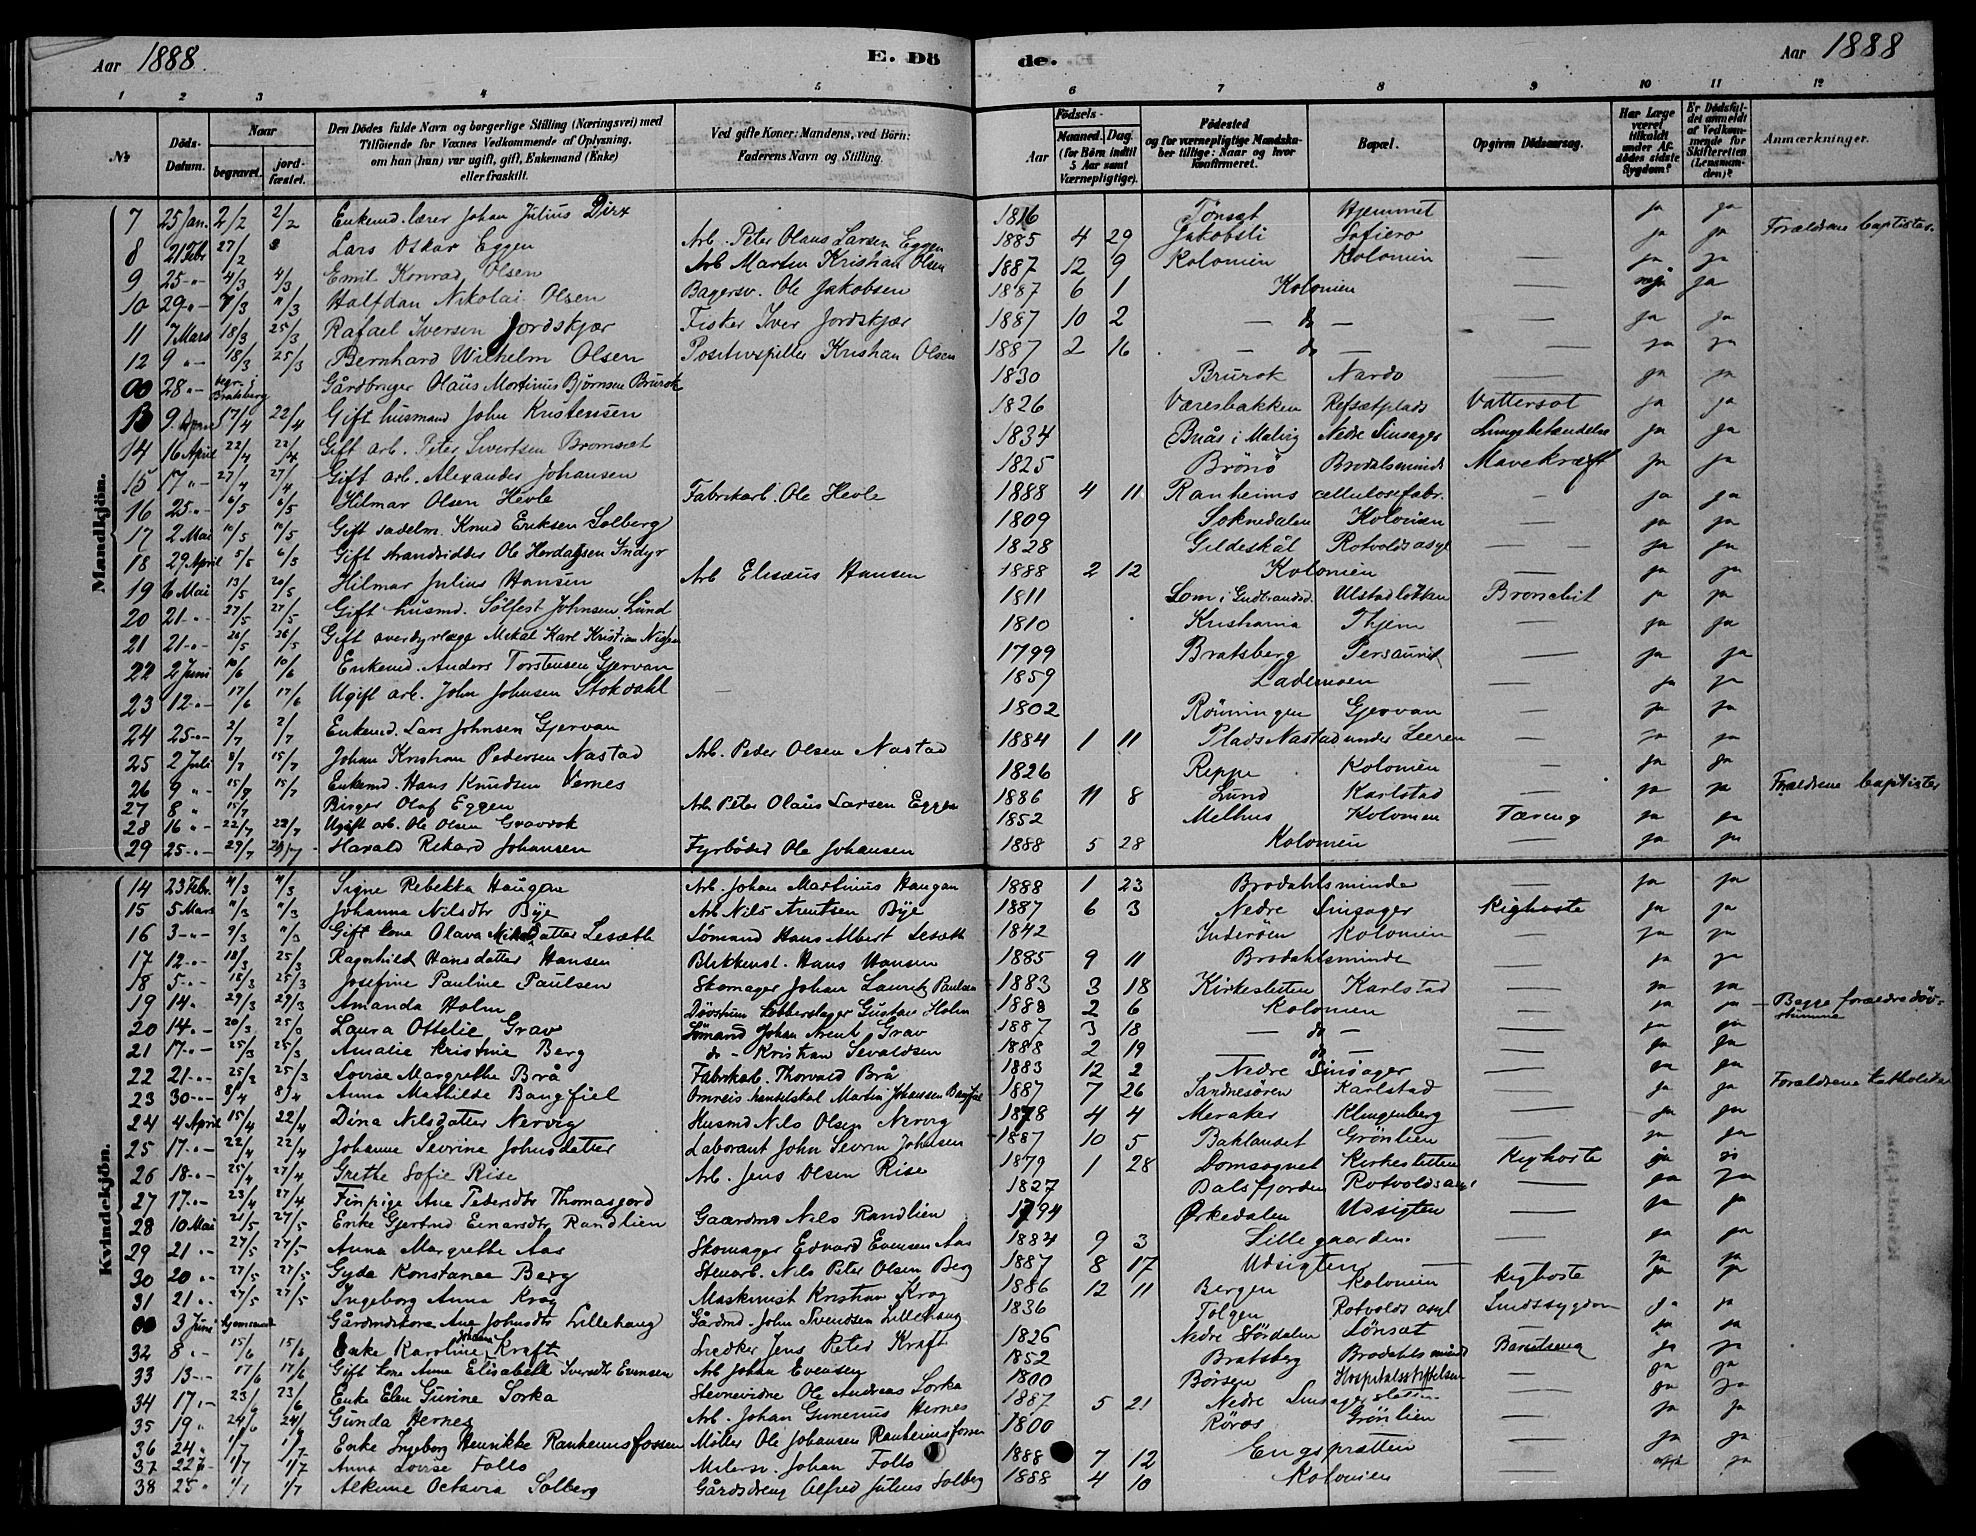 Aar 1888.
E. Dö
de.
Aar 1888
1 2 3 4 5 6 7 8 9 10 11 12
No
Döds-Datum.
Naar
begravet.
jordfæstet.
Den Dödes fulde Navn og borgerlige Stilling (Næringsvei) med Tilföiende for Voxnes Vedkommende af Oplysning, om han (hun) var ugift, gift, Enkemand (Enke) eller fraskilt.
Ved gifte Koner: Mandens, ved Börn: Faderens Navn og Stilling.
Födsels-
Aar
Maaned. Dag.
(for Börn indtil 5 Aar samt Værnepligtige).
Födested og for værnepligtige Mandskaber tillige: Naar og hvor Konfirmeret.
Bopæl.
Opgiven Dödsaarsag.
Har Læge været tilkaldt under Afdödes sidste Sygdom?
Er Dödsfaldet anmeldt af Vedkommende for Skifteretten (Lensmanden)?
Anmærkninger.
Mandkjön.
7 25 Jan. 2/2 2/2 Enkemd. lærer Johan Julius Dirx 1816 Tönset Hjemmet ja ja
8 21 Febr 27/2 Lars Oskar Eggen Arb. Peter Olaus Larsen Eggen 1885 4 29 Jakobsli Sofiero ja ja Forældrene baptister.
9 25 -"- 4/3 4/3 Emil Konrad Olsen Arb Martin Kristian Olsen 1887 12 9 Kolonien Kolonien — ja ja
10 29 -"- 7/3 11/3 Halfdan Nikolai Olsen Bagersv. Ole Jakobsen 1887 6 1 Kolonien — ja
11 7 Mars 18/3 25/3 Rafael Iversen Jordskjær Fisker Iver Jordskjær 1887 10 2 — do — — ja ja
12 9 "- 18/3 25/3 Bernhard Wilhelm Olsen Positivspiller Kristian Olsen 1887 2 16 — do — — ja ja
00 28 "- begr. i Bratsberg Gårdbruger Olaus Martinus Björnsen Brurok 1830 Brurok Nardo — ja ja
13 9. April 17/4 22/4 Gift husmand John Kristensen 1826 Væresbakken Refsætplads Vattersot ja ja
14 16 April 22/4 22/4 Gift arb. Peter Sivertsen Bromset 1834 Nedre Sinsager Lungebetændelse ja ja
15 17 "- 27/4 27/4 Gift arb. Alexander Johansen 1825 Brönö Brodalsminde Mavekræft ja ja
16 25 "- 6/5 6/5 Hilmar Olsen Hevle Fabrikarb. Ole Hevle 1888 4 11 Ranheims cellulosefabr. — ja ja
17 2 Mai 10/5 10/5 Gift sadelm. Knud Eriksen Solberg 1809 Soknedalen Kolonien — ja ja
18 29 April 5/5 6/5 Gift strandsidder Ole Hendagsen Indyr 1828 Gildeskål Rotvolds asyl — ja ja
19 6 Mai 13/5 20/5 Hilmar Julius Hansen Arb Elisæus Hansen 1888 2 12 Kolonien — ja ja
20 21 -"- 27/5 27/5 Gift husmd. Sölfest Johnsen Lund 1811 Lom i Gudbrandsd. Ulstadløkken Bronchit ja ja
21 21 -"- 26/5 26/5 Gift overdyrlæge Mikal Karl Kristian 1810 Kristiania Thjem — ja ja
22 2 Juni 10/6 10/6 Enkemd. Anders Torstensen Gjervan 1799 Bratsberg Persaunet — ja ja
23 12 -"- 17/6 17/6 Ugift arb. John Johnsen Stokdahl — 1859 Lademoen ja ja
24 25 -"- 2/7 2/7 Enkemd. Lars Johnsen Gjervan 1802 Rönningen Gjervan — ja ja
25 2 Juli 8/7 15/7 Johan Kristian Pedersen Nastad Arb. Peder Olsen Nastad 1884 1 11 Plads Nastad under Leeren — ja ja
26 9 "- 15/7 15/7 Enkemd. Hans Knudsen Vernes 1826 Reppe Kolonien — ja ja
27 8 " 15/7 Birger Olaf Eggen Arb. Peter Olaus Larsen Eggen 1886 11 8 Lund Karlstad — ja ja Forældrene baptister
28 16 "- 22/7 22/7 Ugift arb. Ole Olsen Gravrok 1852 Melhus Kolonien Tæring ja ja
29 25 -"- 29/7 29/7 Harald Rikard Johansen Fyrböder Ole Johansen 1888 5 28 Kolonien — ja ja
Kvindekjön.
14 23 Febr. 4/3 4/3 Signe Rebekka Haugan Arb. Johan Martinus Haugan 1888 1 23 Brodahlsminde — ja ja
15 5 Mars 11/3 11/3 Johanna Nilsdtr Bye Arb Nils Arentsen Bye 1887 6 3 Nedre Sinsager Kighoste ja ja
16 3 -"- 9/3 11/3 Gift kone Olava Mikalsdatter Lesæth Sömand Hans Albert Lesæth 1842 Inderöen Kolonien — ja ja
17 12 -"- 18/3 25/3 Ragnhild Hansdatter Hansen Blikkensl. Hans Hansen 1885 9 11 Brodahlsminde — ja ja
18 5 -"- 18/3 25/3 Josefine Pauline Paulsen Skomager Johan Lauritz Paulsen 1883 3 18 Kirkesletten Karlstad — ja ja
19 14 " 29/3 29/3 Amanda Holm Dövstum Gustav Holm 1888 2 6 Kolonien — ja ja Begge forældre dövstumme
20 14 -"- 20/3 25/3 Laura Ottelie Grav Sömand Johan Arnt Grav 1887 3 18 — do — — ja ja
21 17 -"- 25/3 25/3 Amalie Kristine Berg do - Kristian Sevaldsen 1888 2 19 — do — — ja ja
22 21 -"- 25/3 25/3 Lovise Margrethe Brå Fabrikarb. Thorvald Brå 1883 12 2 Nedre Sinsager — ja ja
23 30 -"- 8/4 8/4 Anna Mathilde Bangfiel Omreis. handelskal Martin Johansen Bangfiel 1887 7 26 Sandnesören Karlstad — ja ja Forældrene katholiker
24 4 April 15/4 22/4 Dina Nilsdatter Nervig Husmd Nils Olsen Nervig 1878 4 4 Meraker Klingenberg — ja ja
25 17 -"- 22/4 22/4 Johanne Sevrine Johnsdatter Laborant John Sevrin Johnsen 1887 10 5 Baklandet Grönlien — ja ja
26 18 -"- 25/4 27/4 Grethe Sofie Rise Arb. Jens Olsen Rise 1879 1 28 Domsognet Kirkesletten Kighoste ja ja
27 17 -"- 23/4 27/4 Finpige Ane Pedersdtr Thomasjord 1827 Balsfjorden Rotvolds asyl — ja ja
28 10 Mai 21/5 27/5 Enke Gjertrud Einarsdtr Randlien Gaardmd Nils Randlien 1794 Ørkedalen Udsigten — ja ja
29 21 -"- 27/5 27/5 Anna Margrethe Aas Skomager Edvard Evensen Aas 1884 9 3 Lillegaarden. — ja ja
30 20 "- 27/5 27/5 Gyda Konstance Berg Stenarb. Nils Peter Olsen Berg 1887 8 17 Udsigten — — ja ja
31 21 "- 27/5 27/5 Ingeborg Anna Krog Maskinist Kristian Krog 1886 12 11 Bergen Kolonien Kighoste ja ja
00 3 Juni Hjemsendt Gårdmdskone Ane Johnsdtr Lillehaug Gårdmd. John Svendsen Lillehaug 1836 Tolgen Rotvolds asyl Sindssygdom ja ja
32 8 "- 15/6 15/6 Enke Karoline Johanna Kraft Snedker Jens Peter Kraft 1826 Nedre Stördalen Lönsæt — ja ja
33 13 -"- 17/6 17/6 Gift kone Anne Elisabeth Iversdtr Evensen Arb Johan Evensen 1852 Bratsberg Brodahlsminde Barselseng ja ja
34 17 "- 23/6 23/6 Enke Elen Gurine Sorka Stevnevidne Ole Andreas Sorka 1800 Börsen Hospitalsstiftelsen — ja ja
35 19 " 24/6 24/6 Gunda Hernes Arb. Johan Gunerius Hernes 1887 5 21 Nedre Sinsager sletten — ja ja
36 24 " 1/7 1/7 Enke Ingeborg Henrikke Ranheimsfossen Möller Ole Johansen Ranheimsfossen 1800 Röros Grönlien — ja ja
37 22 "- 1/7 1/7 Anna Lovise Folls Malersv. Johan Folls 1888 7 12 Engsprætten — ja ja
38 25 " 1/7 1/7 Alkine Octavia Solberg Gårdsdreng Alfred Julius Solberg 1888 4 10 Kolonien — ja